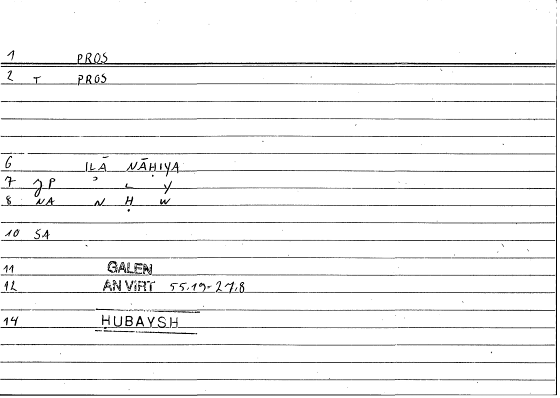 1 PROS
2 T PROS
6 ILĀ NĀḤIYA
7 JP ʾ L Y
8 NA N Ḥ W
10 SA
11 GALEN
12 AN VIRT 55.19-27.8
14 HUBAYSH